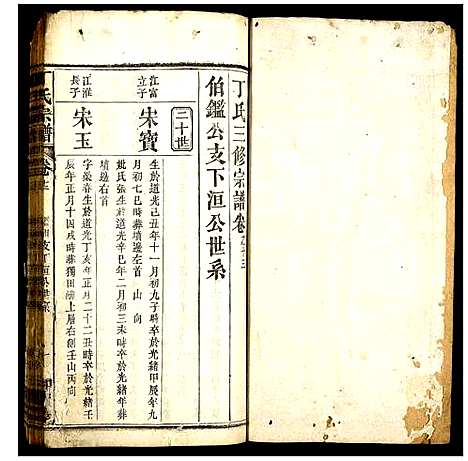 丁氏三修宗譜卷之十三
伯鑑公支下洹公世系
二十世
江富立子
宋寶
生於道光己丑年十一月初九子時卒於光緒甲辰年九
月初七巳時葬墳邊左首 山 向
妣氏張生於道光辛巳年二月初三未時卒於光緒年葬
墳邊左首
江淮長子
宋玉
字榮春生於道光丁亥年正月二十二丑時卒於光緒壬
辰年正月十四戌時葬獨田湖上屋右側壬山丙向
氏宗譜
卷